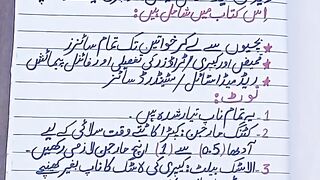 اس کتاب میں شامل ہیں:
★ بچیوں سے لے کر خواتین تک تمام سائزز
★ قمیض اور کیپری/ٹراؤزر کی تفصیلی اور فائنل پیمائش
★ ریڈ میڈ اسٹائل / سٹینڈرڈ سائز
نوٹ:
1- یہ تمام ناپ تیار شدہ ہیں۔
2- کٹنگ مارجن: کپڑا کاٹتے وقت سلائی کے لیے
آدھا (0.5) سے (1) انچ مارجن لازمی رکھیں۔
3- الاسٹک بیلٹ: کیپری کی لاسٹک کا ناپ بغیر کھینچے